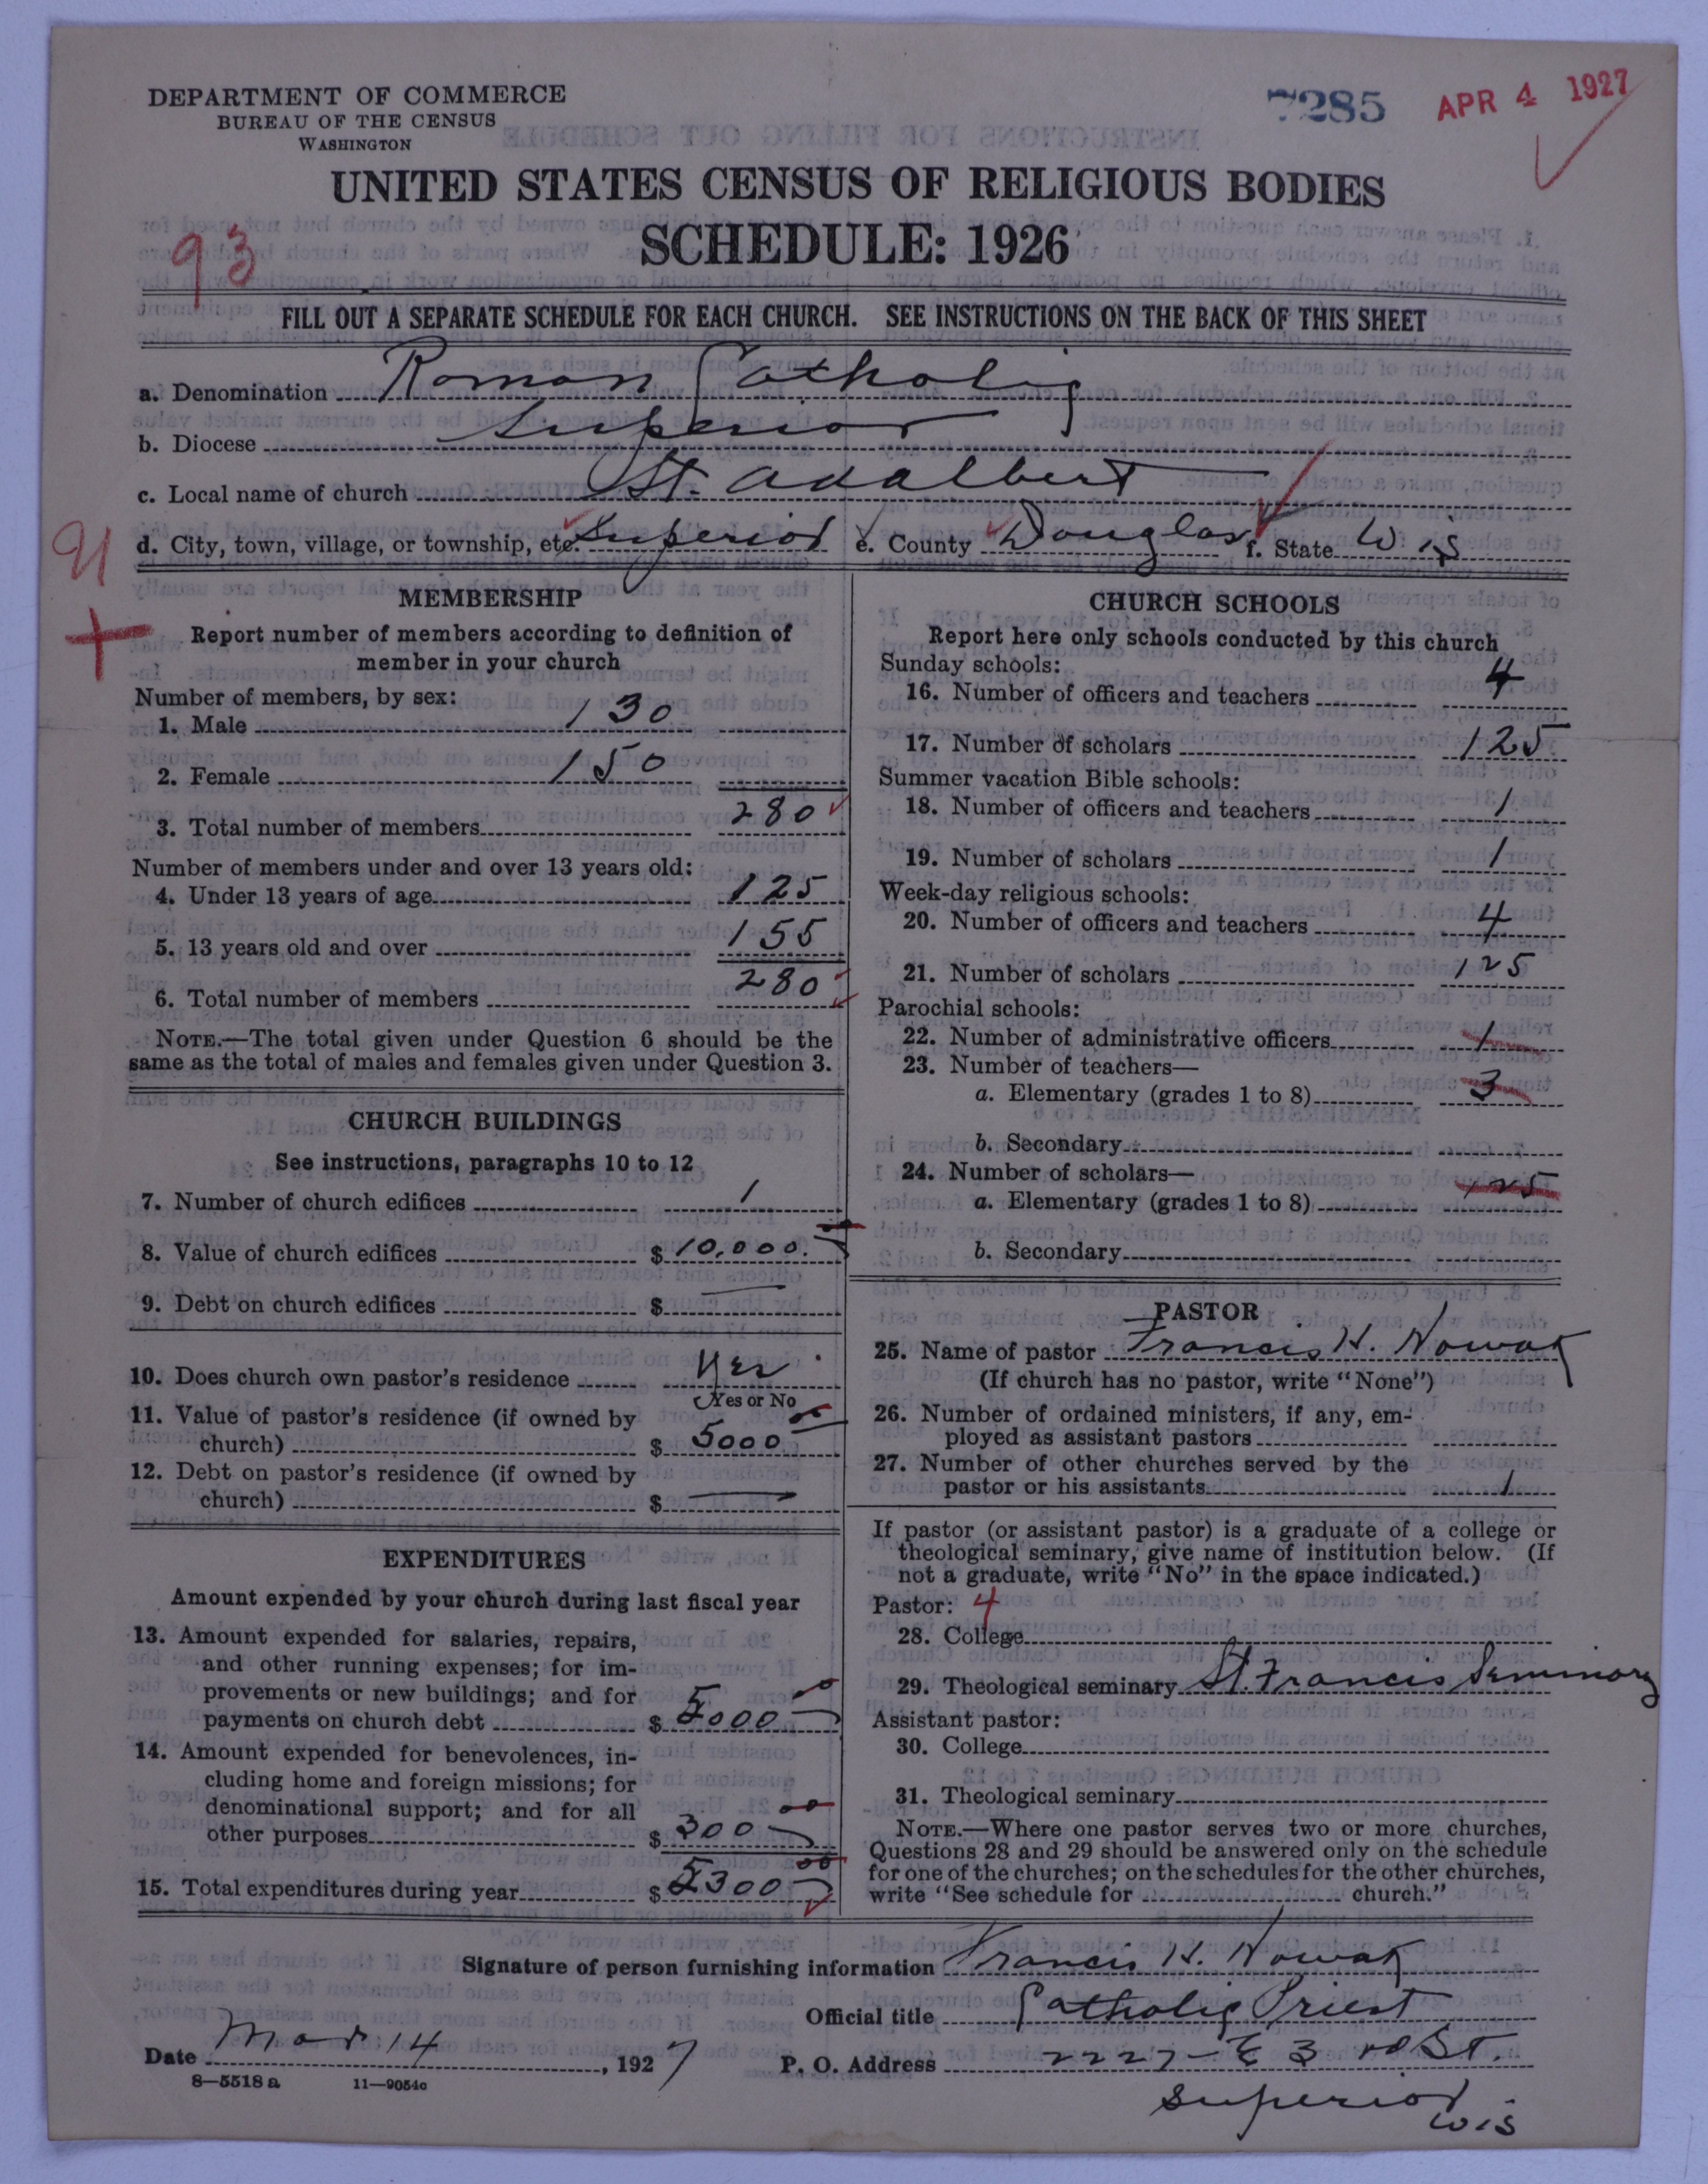 DEPARTMENT OF COMMERCE
BUREAU OF THE CENSUS
WASHINGTON
7285 APR 4 1927
UNITED STATES CENSUS OF RELIGIOUS BODIES
SCHEDULE: 1926
93
FILL OUT A SEPARATE SCHEDULE FOR EACH CHURCH. SEE INSTRUCTIONS ON THE BACK OF THIS SHEET
a. Denomination Roman Catholic
b. Diocese Superior
c. Local name of church St. Adalbert
d. City, town, village, or township, etc. Superior e. County Douglas f. State Wis
91
MEMBERSHIP
Report number of members according to definition of
member in your church
Number of members, by sex:
1. Male 130
2. Female 150
3. Total number of members 280
Number of members under and over 13 years old:
4. Under 13 years of age 125
5. 13 years old and over 155
6. Total number of members 280
NOTE.—The total given under Question 6 should be the
same as the total of males and females given under Question 3.
CHURCH BUILDINGS
See instructions, paragraphs 10 to 12
7. Number of church edifices 1
8. Value of church edifices $ 10,000.00
9. Debt on church edifices $ —
10. Does church own pastor's residence Yes
Yes or No
11. Value of pastor's residence (if owned by
church) $ 5000 00
12. Debt on pastor's residence (if owned by
church) $ —
EXPENDITURES
Amount expended by your church during last fiscal year
13. Amount expended for salaries, repairs,
and other running expenses; for im-
provements or new buildings; and for
payments on church debt $ 5000 00
14. Amount expended for benevolences, in-
cluding home and foreign missions; for
denominational support; and for all
other purposes $ 300 00
15. Total expenditures during year $ 5300 00
CHURCH SCHOOLS
Report here only schools conducted by this church
Sunday schools:
16. Number of officers and teachers 4
17. Number of scholars 125
Summer vacation Bible schools:
18. Number of officers and teachers 1
19. Number of scholars 1
Week-day religious schools:
20. Number of officers and teachers 4
21. Number of scholars 125
Parochial schools:
22. Number of administrative officers 1
23. Number of teachers—
a. Elementary (grades 1 to 8) 3
b. Secondary
24. Number of scholars—
a. Elementary (grades 1 to 8) 125
b. Secondary
PASTOR
25. Name of pastor Francis H. Nowak
(If church has no pastor, write "None")
26. Number of ordained ministers, if any, em-
ployed as assistant pastors
27. Number of other churches served by the
pastor or his assistants 1
If pastor (or assistant pastor) is a graduate of a college or
theological seminary, give name of institution below. (If
not a graduate, write "No" in the space indicated.)
Pastor: 4
28. College
29. Theological seminary St. Francis Seminary
Assistant pastor:
30. College
31. Theological seminary
NOTE.—Where one pastor serves two or more churches,
Questions 28 and 29 should be answered only on the schedule
for one of the churches; on the schedules for the other churches,
write "See schedule for church."
Signature of person furnishing information Francis H. Nowak
Official title Catholic Priest
Date Mar 14, 1927 P. O. Address 2227-E 3rd St.
8—5518 a 11—9054c
Superior
Wis